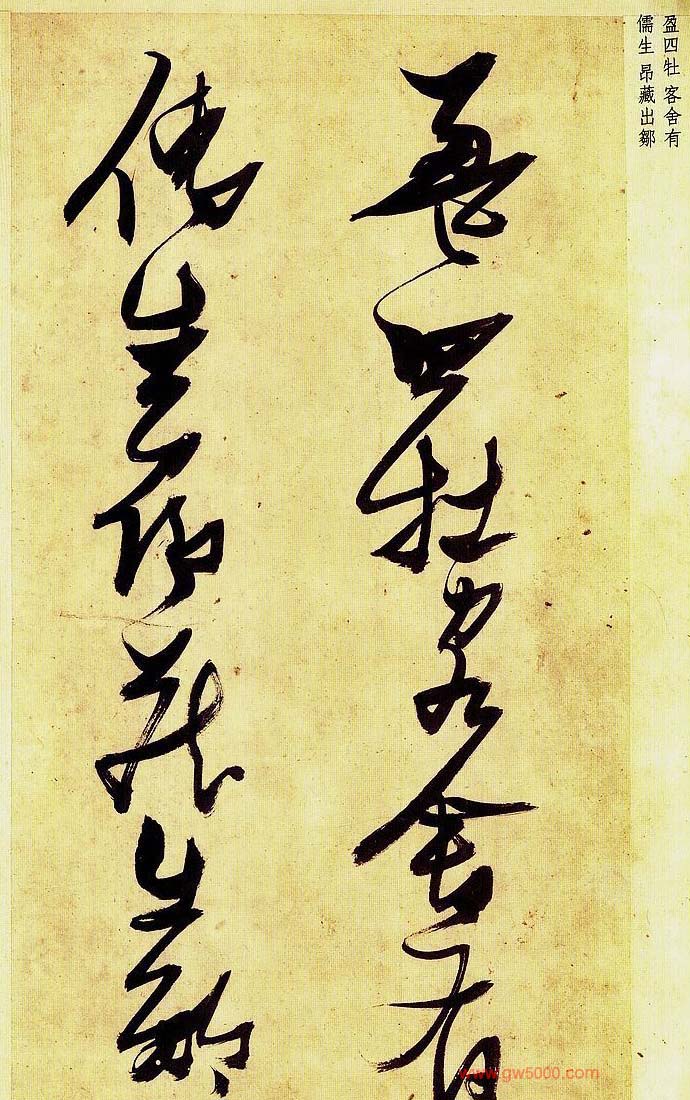 盈四牡 客舍有
儒生 昂藏出鄒
盈四牡客舍有
儒生昂藏出鄒
www.gw5000.com